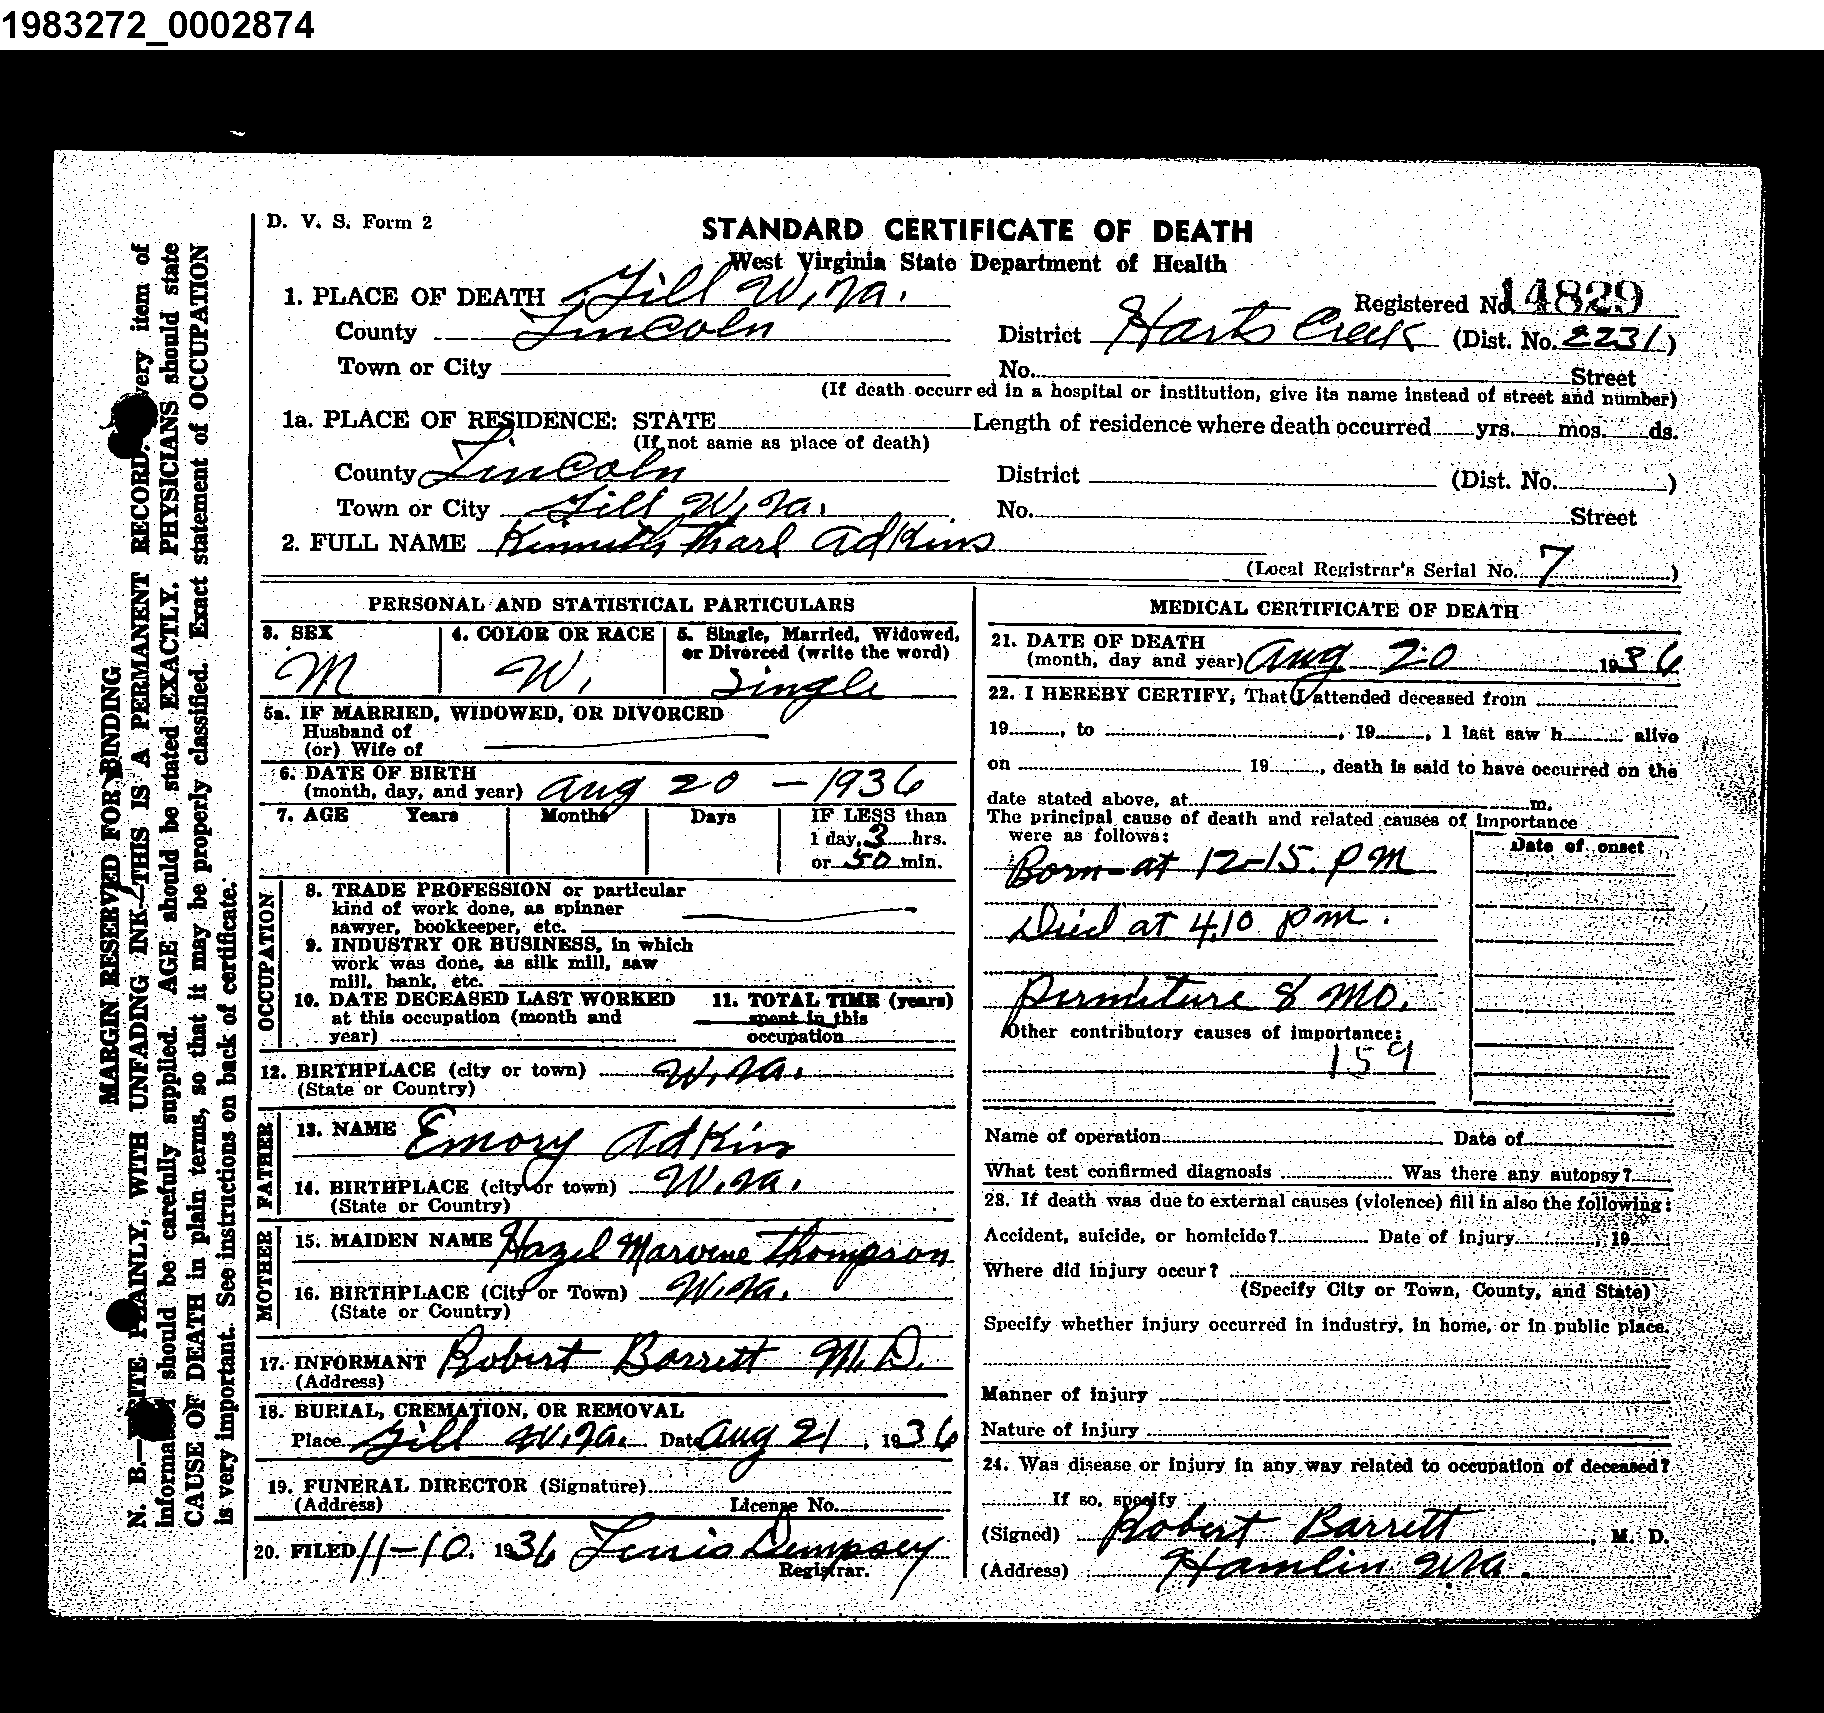 1983272_0002874
D. V. S. Form 2
STANDARD CERTIFICATE OF DEATH
West Virginia State Department of Health
1. PLACE OF DEATH Gill W. Va.
Registered No. 14829
County Lincoln District Harts Creek (Dist. No. 2231)
Town or City No. Street
(If death occurred in a hospital or institution, give its name instead of street and number)
1a. PLACE OF RESIDENCE: STATE Length of residence where death occurred yrs. mos. ds.
(If not same as place of death)
County Lincoln District (Dist. No. )
Town or City Gill W. Va. No. Street
2. FULL NAME Kinneth Tharl Adkins
(Local Registrar's Serial No. 7 )
PERSONAL AND STATISTICAL PARTICULARS
3. SEX M
4. COLOR OR RACE W.
5. Single, Married, Widowed,
or Divorced (write the word)
Single
5a. IF MARRIED, WIDOWED, OR DIVORCED
Husband of
(or) Wife of
6. DATE OF BIRTH
(month, day, and year) Aug 20 - 1936
7. AGE Years Months Days IF LESS than
1 day, 3 hrs.
or 50 min.
OCCUPATION
8. TRADE PROFESSION or particular
kind of work done, as spinner
sawyer, bookkeeper, etc.
9. INDUSTRY OR BUSINESS, in which
work was done, as silk mill, saw
mill, bank, etc.
10. DATE DECEASED LAST WORKED
at this occupation (month and
year)
11. TOTAL TIME (years)
spent in this
occupation
12. BIRTHPLACE (city or town) W. Va.
(State or Country)
FATHER
13. NAME Emory Adkins
14. BIRTHPLACE (city or town) W. Va.
(State or Country)
MOTHER
15. MAIDEN NAME Hazel Marvene Thompson
16. BIRTHPLACE (City or Town) W. Va.
(State or Country)
17. INFORMANT Robert Barrett M. D.
(Address)
18. BURIAL, CREMATION, OR REMOVAL
Place Gill W. Va. Date Aug 21, 1936
19. FUNERAL DIRECTOR (Signature)
(Address) License No.
20. FILED 11-10, 1936 Lewis Dempsey
Registrar.
MEDICAL CERTIFICATE OF DEATH
21. DATE OF DEATH
(month, day and year) Aug 20 1936
22. I HEREBY CERTIFY, That I attended deceased from
19 , to , 19 , I last saw h alive
on 19 , death is said to have occurred on the
date stated above, at m.
The principal cause of death and related causes of importance
were as follows:
Date of onset
Born at 12-15. PM
Died at 4.10 pm.
Permiture 8 Mo.
Other contributory causes of importance:
159
Name of operation Date of
What test confirmed diagnosis Was there any autopsy?
23. If death was due to external causes (violence) fill in also the following:
Accident, suicide, or homicide? Date of injury , 19
Where did injury occur?
(Specify City or Town, County, and State)
Specify whether injury occurred in industry, in home, or in public place.
Manner of injury
Nature of injury
24. Was disease or injury in any way related to occupation of deceased?
If so, specify
(Signed) Robert Barrett , M. D.
(Address) Hamlin W Va.
MARGIN RESERVED FOR BINDING
N. B.—WRITE PLAINLY, WITH UNFADING INK—THIS IS A PERMANENT RECORD. Every item of
information should be carefully supplied. AGE should be stated EXACTLY. PHYSICIANS should state
CAUSE OF DEATH in plain terms, so that it may be properly classified. Exact statement of OCCUPATION
is very important. See instructions on back of certificate.